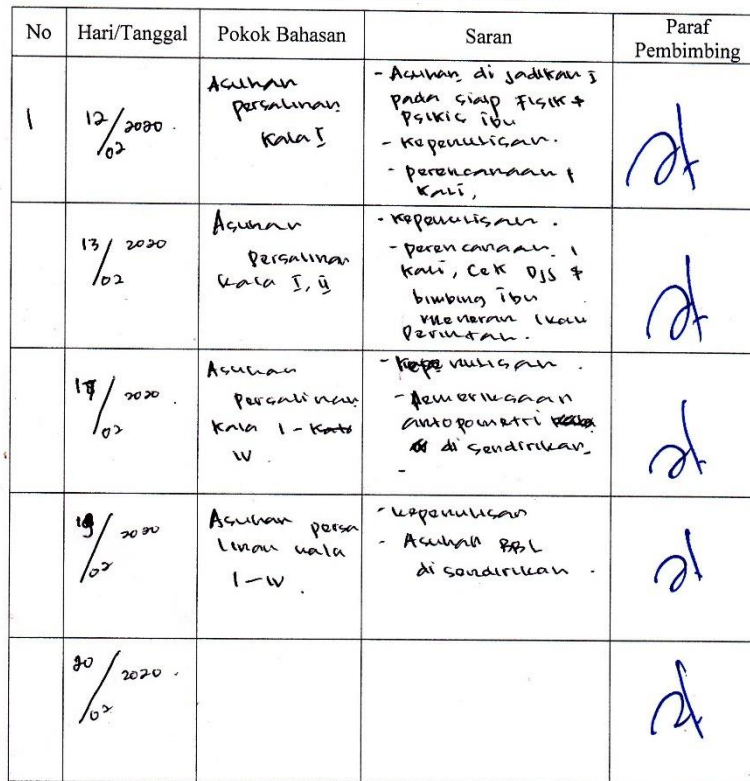 No Hari/Tanggal Pokok Bahasan Saran Paraf
Pembimbing
1
12/02 2020.
Asuhan
persalinan
Kala I
- Asuhan di jadikan I
pada siap Fisik +
Psikis ibu
- Kepenulisan.
- perencanaan
Kali,
13/02 2020
Asuhan
Persalinan
Kala I, II
- Kepenulisan.
- perencanaan 1
Kali, Cek DJJ &
bimbing ibu
meneran 1 kali
2020.
/02
Asuhan
Persalinan
Kala I -
IV
- Kepenulisan.
- Pemeriksaan
antopometri
di sendirikan
-
/02 2020
Asuhan persa
linan kala
I - IV.
- Kepenulisan
- Asuhan BBL
di sendirikan.
20/02 2020.